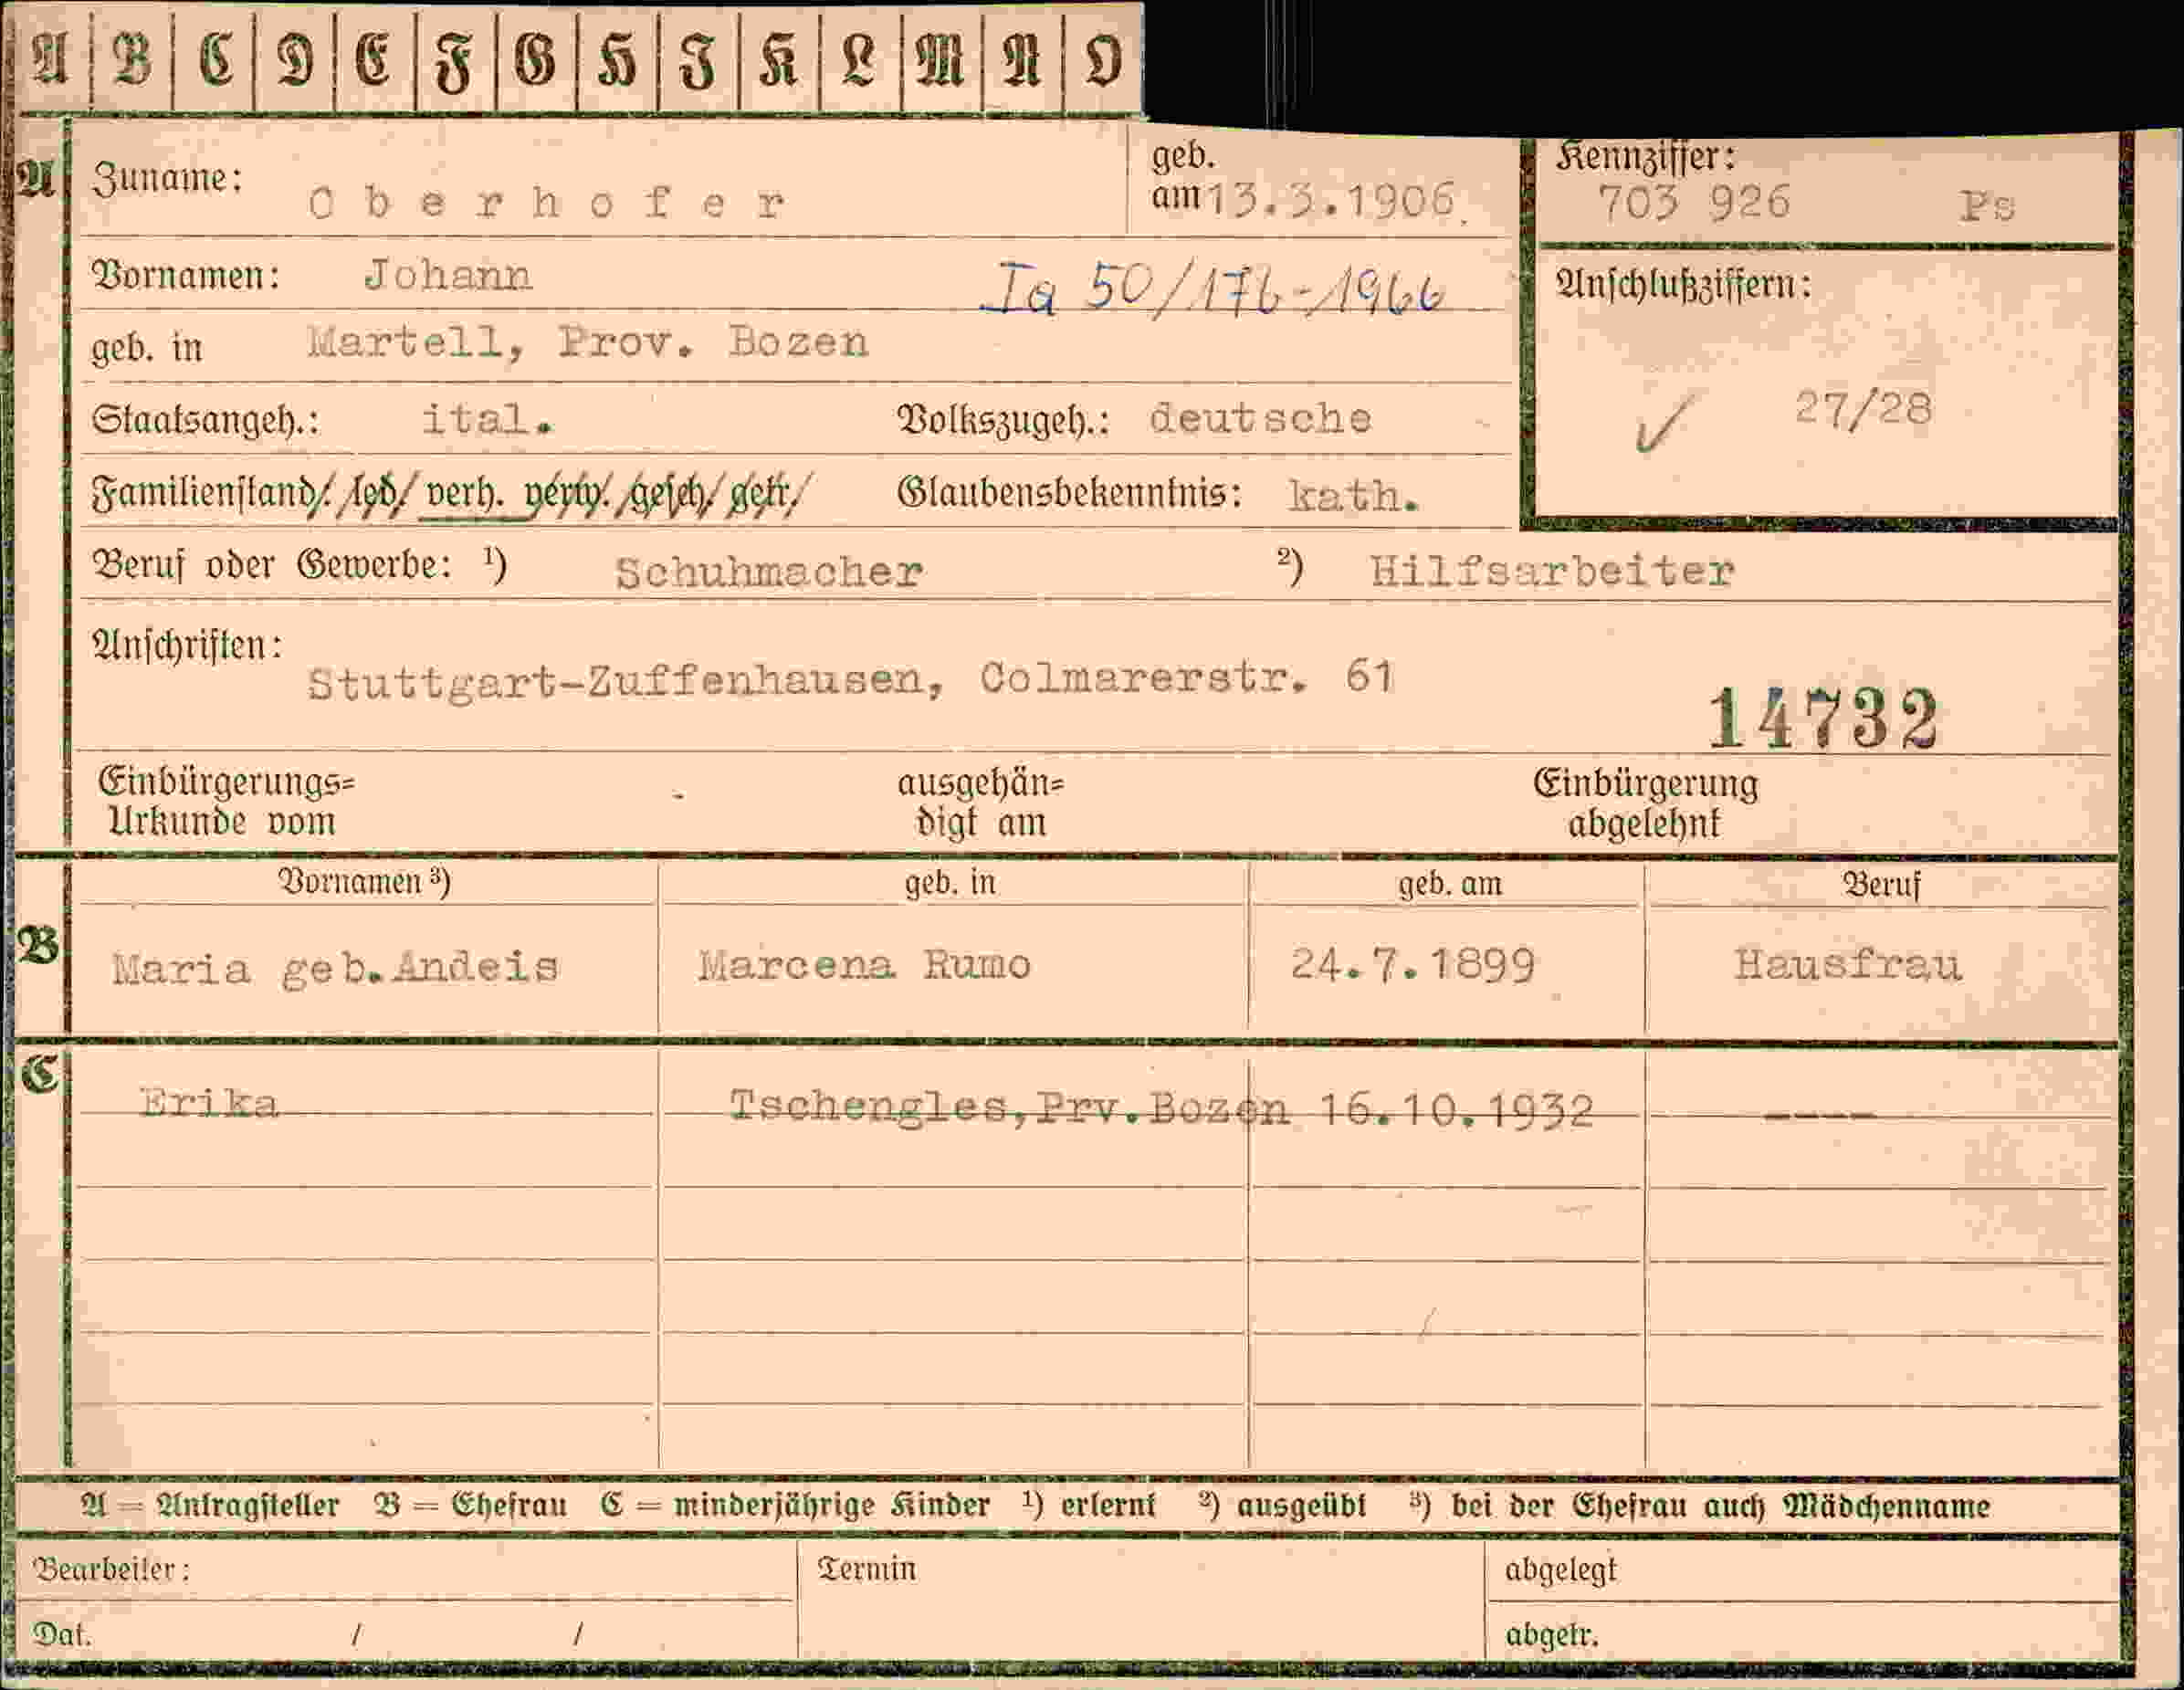 A B C D E F G H J K L M N O
A Zuname: Oberhofer geb. am 13.3.1906. Kennziffer: 703 926 Ps
Vornamen: Johann Ia 50/176-1966 Anschlußziffern:
geb. in Martell, Prov. Bozen
Staatsangeh.: ital. Volkszugeh.: deutsche 27/28
Familienstand: led. verh. verw. gesch. getr. Glaubensbekenntnis: kath.
Beruf oder Gewerbe: 1) Schuhmacher 2) Hilfsarbeiter
Anschriften:
Stuttgart-Zuffenhausen, Colmarerstr. 61
14732
Einbürgerungs= ausgehän= Einbürgerung
Urkunde vom digt am abgelehnt
Vornamen 3) geb. in geb. am Beruf
B Maria geb.Andeis Marcena Rumo 24.7.1899 Hausfrau
C Erika Tschengles,Prv.Bozen 16.10.1932 ----
A = Antragsteller B = Ehefrau C = minderjährige Kinder 1) erlernt 2) ausgeübt 3) bei der Ehefrau auch Mädchenname
Bearbeiter: Termin abgelegt
Dat. / / abgetr.